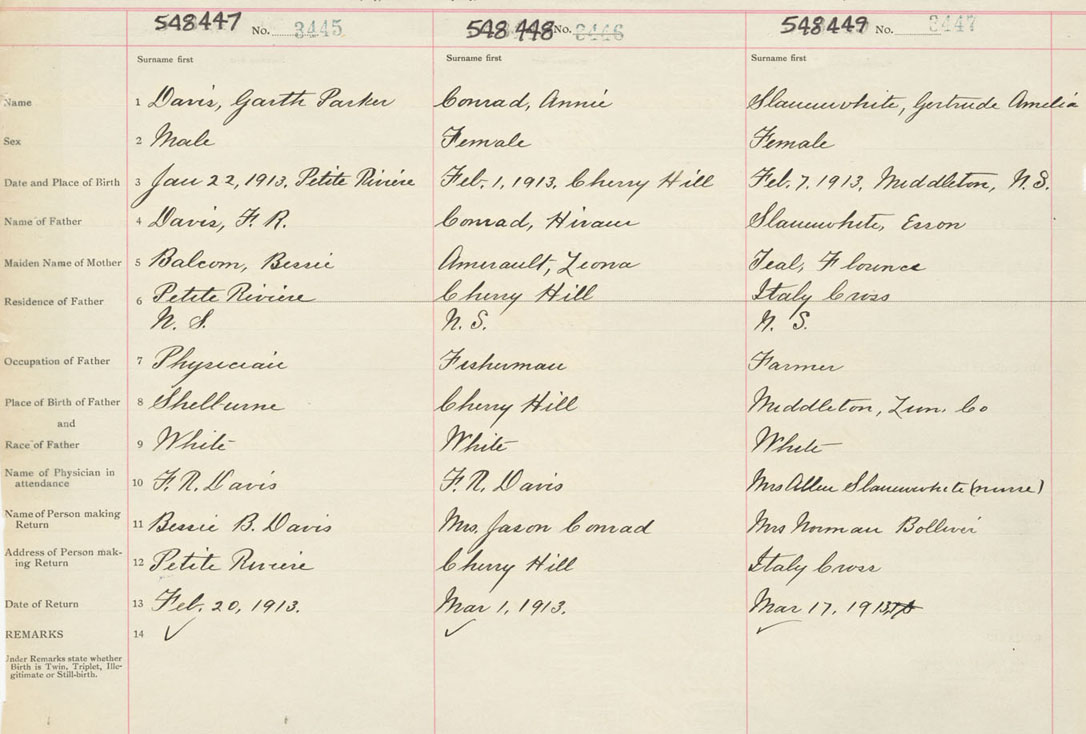 548447 No. 3445 548448 No. 3446 548449 No. 3447
Surname first Surname first Surname first
Name 1 Davis, Garth Parker Conrad, Annie Slauenwhite, Gertrude Amelia
Sex 2 Male Female Female
Date and Place of Birth 3 Jan 22, 1913, Petite Riviere Feb. 1, 1913, Cherry Hill Feb. 7, 1913, Middleton, N.S.
Name of Father 4 Davis, F. R. Conrad, Hiram Slauenwhite, Esson
Maiden Name of Mother 5 Balcom, Bessie Amerault, Leona Teal, Florence
Residence of Father 6 Petite Riviere Cherry Hill Italy Cross
N. S. N. S. N. S.
Occupation of Father 7 Physician Fisherman Farmer
Place of Birth of Father 8 Shelburne Cherry Hill Middleton, Lun. Co
and
Race of Father 9 White White White
Name of Physician in
attendance 10 F. R. Davis F. R. Davis Mrs Allen Slauenwhite (nurse)
Name of Person making
Return 11 Bessie B. Davis Mrs. Jason Conrad Mrs Norman Bolliver
Address of Person mak-
ing Return 12 Petite Riviere Cherry Hill Italy Cross
Date of Return 13 Feb. 20, 1913. Mar 1, 1913. Mar 17, 1913
REMARKS 14 ✓ ✓ ✓
Under Remarks state whether
Birth is Twin, Triplet, Ille-
gitimate or Still-birth.